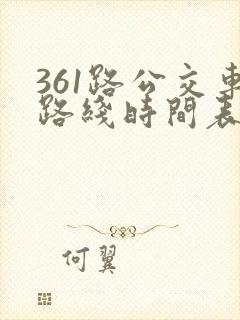 361路公交車
路綫時間表
何翼